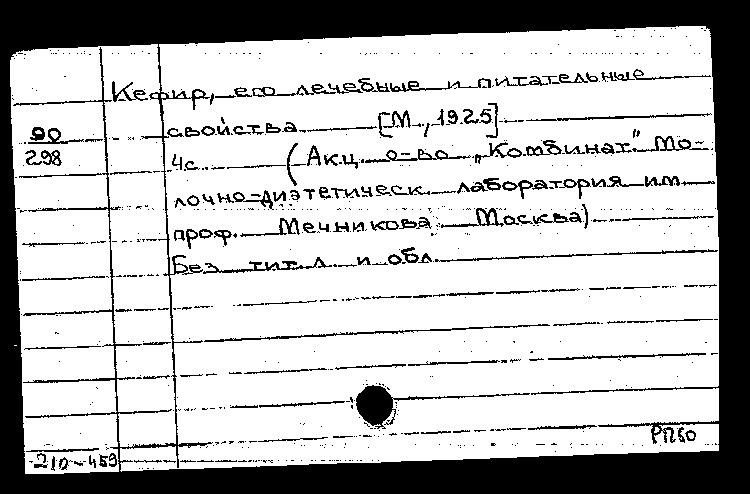 Кефир, его лечебные и питательные
90
298
свойства [М., 1925]
4с. (Акц. о-во „Комбинат." Мо-
лочно-диэтетическ. лаборатория им.
проф. Мечникова. Москва)
Без тит. л. и обл.
210-459